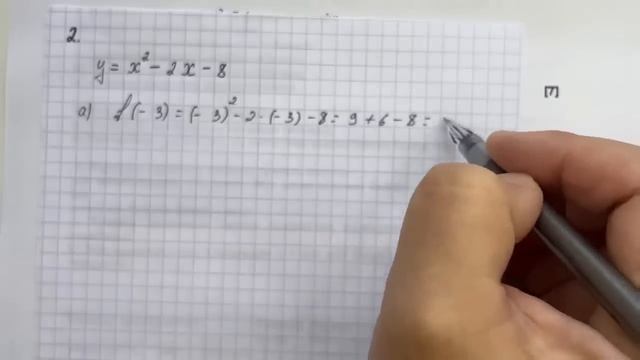 2.
y = x² - 2x - 8
a) f(-3) = (-3)² - 2·(-3) - 8 = 9 + 6 - 8 =